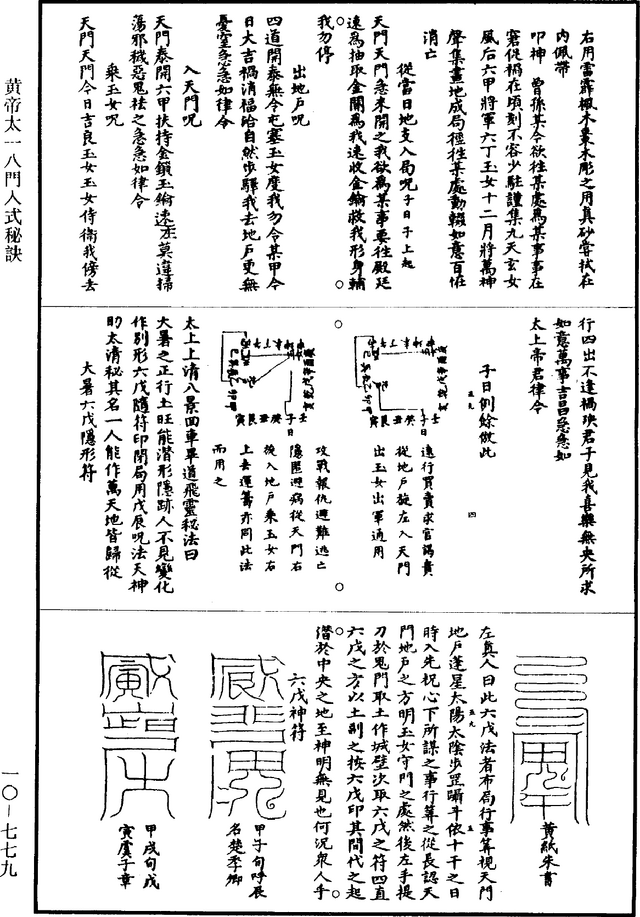 黄帝太一八門入式秘訣
一〇—七七九
右用雷霹楓木棗木彫之用真砂雲拭在
内佩帶
叩神　曾孫某今欲往某處為某事事在
窘促禍在頃刻不容少駐謹集九天玄女
風后六甲將軍六丁玉女十二月將萬神
聲集畫地成局徑往某處動輟如意百恠
消亡
從當日地支入局呪子日子上起
天門天門急來開之我欲為某事要往殿廷
速為抽取金關為我速收金鑰救我形身輔
我勿停
出地戶呪
四道開泰無令屯塞玉女度我勿令某甲令
日大吉禍消福給自然步驛我去地戶更無
憂窒急急如律令
入天門呪
天門泰開六甲扶持金鎖玉鑰速來莫違掃
蕩邪穢惡鬼祛之急急如律令
乘玉女呪
天門天門今日吉良玉女玉女侍衛我傍去
行四出不逢禍殃君子見我喜樂無央所求
如意萬事吉昌急急如
太上帝君律令
子日例餘倣此
遠行買賣求官謁貴
從地戶旋左入天門
出玉女出軍通用
攻戰報仇避難逃亡
隱匿避病從天門右
從入地戶乘玉女右
上去運籌亦同此法
而用之
太上上清八景四車畢道飛靈秘法曰
大暑之正行土旺能潛形隱跡人不見變化
作別形六戊隨符印閉局用戊辰呪法天神
助太清秘其名一人能作萬天地皆歸從
大暑六戊隱形符
黃紙朱書
左真人曰此六戊法者布局行事算視天門
地戶蓬星太陽太陰步罡躡斗依十干之日
時入先祝心下所謀之事行算之從長認天
門地戶之方明玉女守門之處然後左手提
刀於鬼門取土作城壁次取六戊之符四直
六戊之方以土剔之按六戊印其間代之起
潛於中央之地至神明無見也何況衆人乎
六戊神符
甲子旬呼辰
名楚季卿
甲戌旬戊
寅虞子章